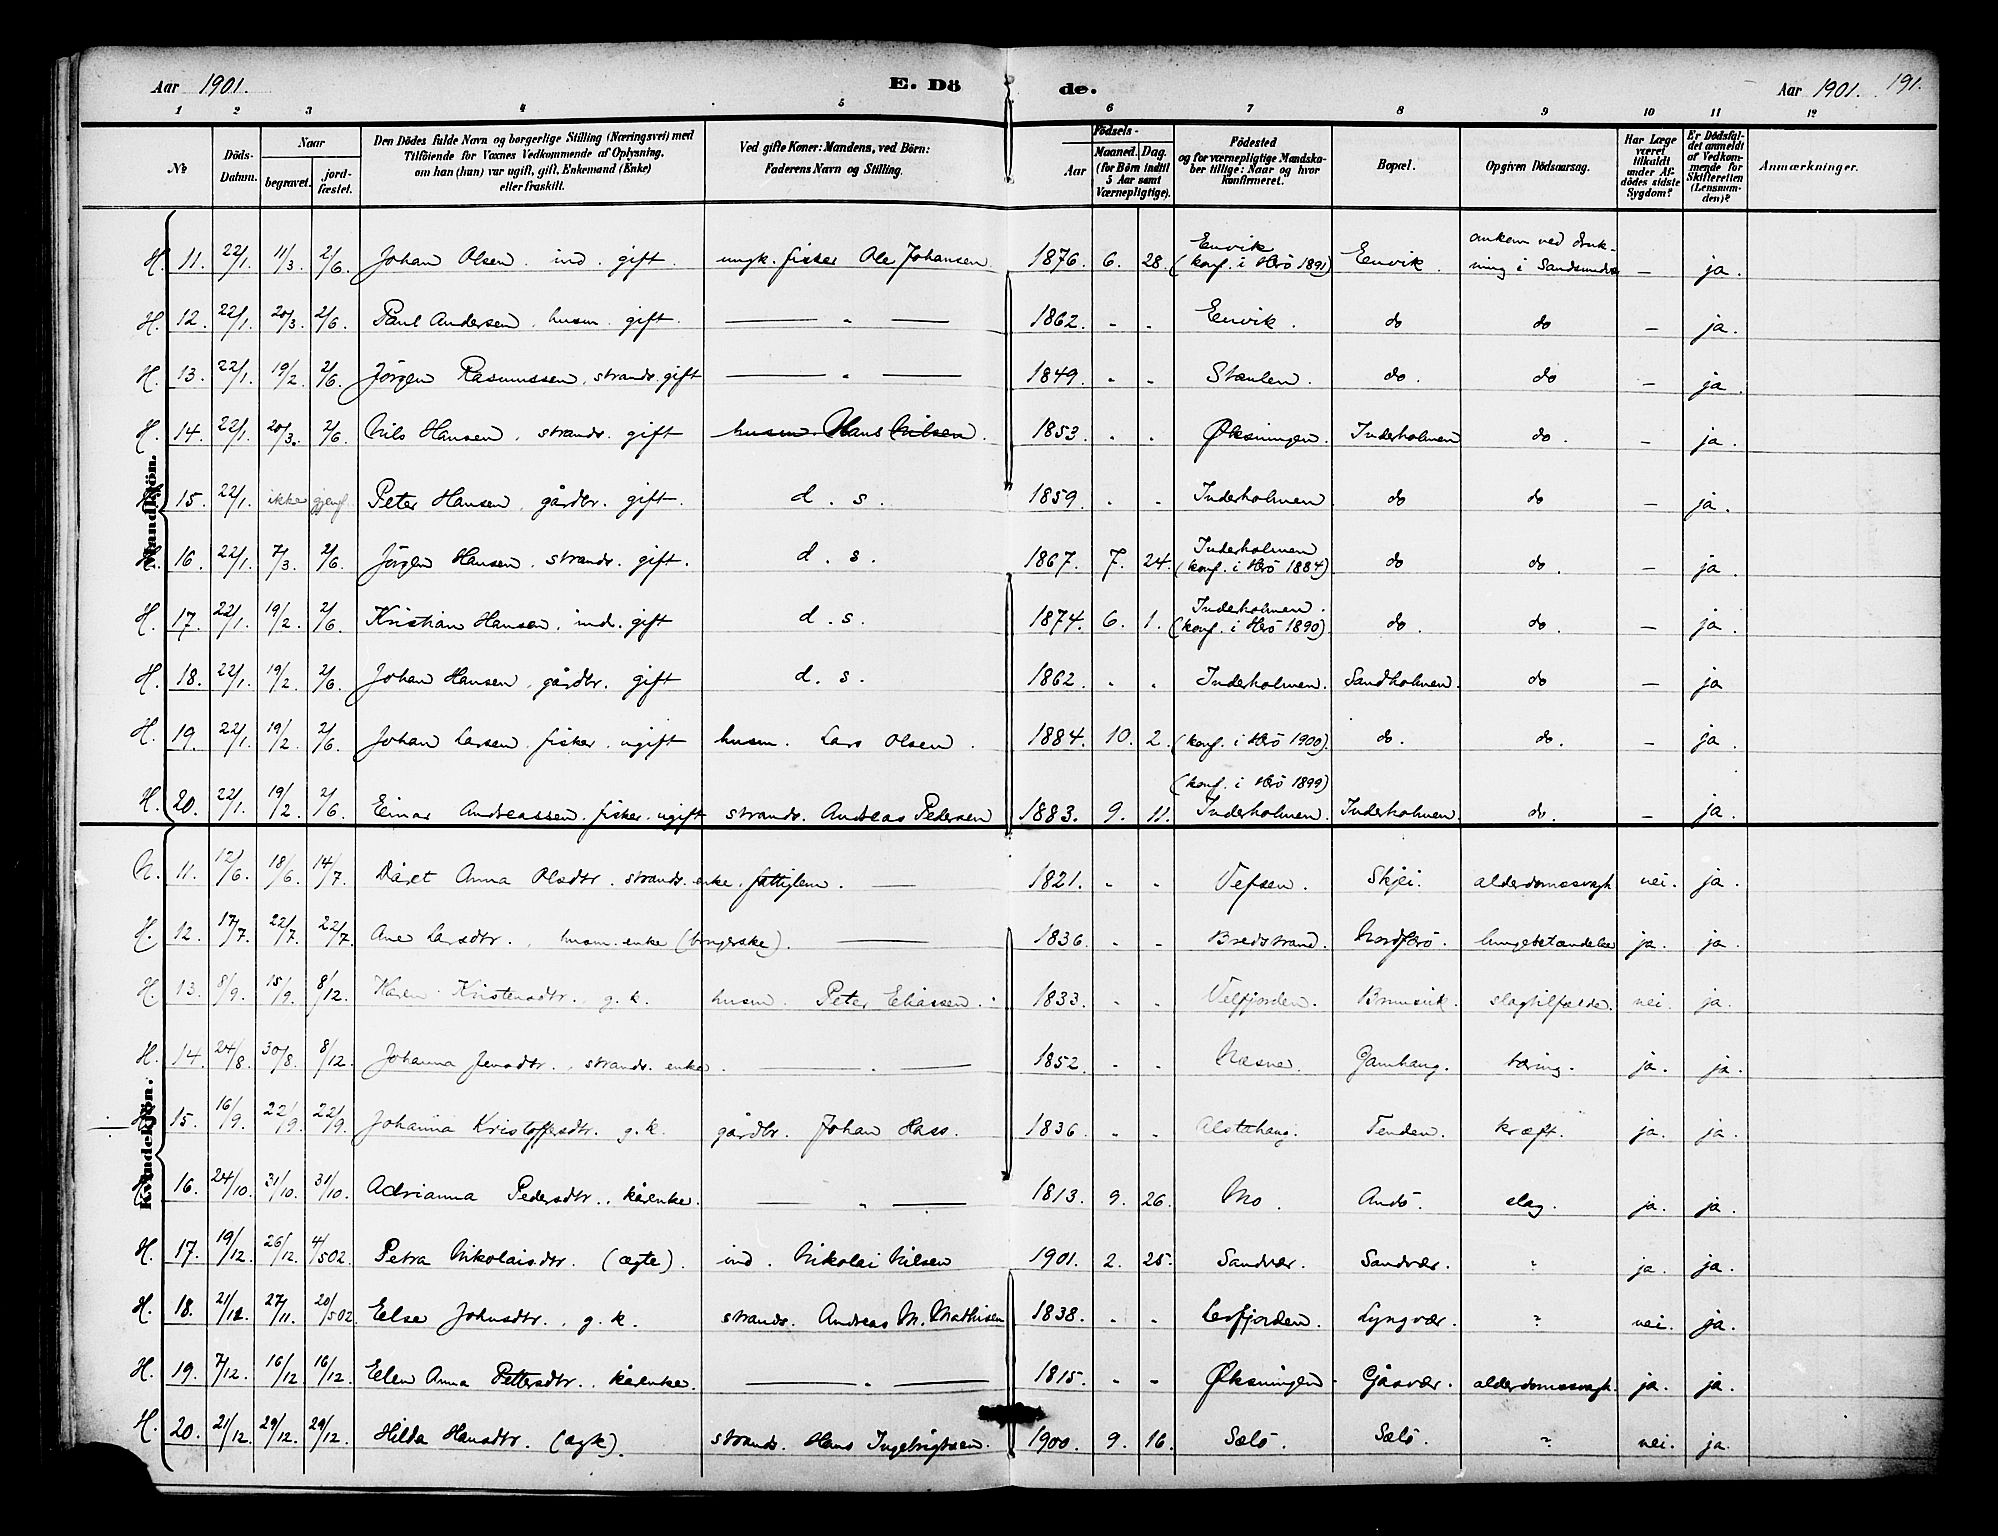 Aar 1901. E. Dö de. Aar 1901. 191.
1 2 3 4 5 6 7 8 9 10 11 12
No
Döds-Datum.
Naar begravet. jord-fæstet.
Den Dödes fulde Navn og borgerlige Stilling (Næringsvei) med
Tilföiende for Voxnes Vedkommende af Oplysning,
om han (hun) var ugift, gift, Enkemand (Enke)
eller fraskilt.
Ved gifte Koner: Mandens, ved Börn:
Faderens Navn og Stilling.
Födsels-
Aar Maaned. Dag.
(for Børn indtil
5 Aar samt
Værnepligtige).
Födested
og for værnepligtige Mandska-
ber tillige: Naar og hvor
konfirmeret.
Bopæl.
Opgiven Dödsaarsag.
Har Læge
været
tilkaldt
under Af-
dödes sidste
Sygdom?
Er Dödsfal-
det anmeldt
af Vedkom-
mende for
Skifteretten
(Lensman-
den)?
Anmærkninger.
Mandkjön.
H. 11. 22/1. 11/3. 2/6. Johan Olsen. ind. gift. ungk. fisker Ole Johansen 1876. 6. 28. Envik (konf. i Herö 1891) Envik. ankom ved druk-ning i Sandsundvær – ja.
H. 12. 22/1. 20/3. 2/6. Paul Andersen. husm. gift. — " — 1862. " " Envik. do do – ja.
H. 13. 22/1. 19/2. 2/6. Jörgen Rasmussen, strands. gift — " — 1849. " " Staulen. do. do – ja.
H. 14. 22/1. 20/3. 2/6. Nils Hansen, strands. gift husm. Hans Nilsen. 1853. " " Øksningen. Inderholmen do. – ja.
H. 15. 22/1. ikke gjenf. Peter Hansen, gårdbr. gift. d. s. 1859. " " Inderholmen do do – ja.
H. 16. 22/1. 7/3. 2/6. Jörgen Hansen. strands. gift. d. s. 1867. 7. 24. Inderholmen (konf. i Herö 1884) do do. – ja.
H. 17. 22/1. 19/2. 2/6. Kristian Hansen. ind. gift d. s. 1874. 6. 1. Inderholmen. (konf. i Herö 1890) do. do. – ja.
H. 18. 22/1. 19/2. 2/6. Johan Hansen, gårdbr. gift d. s. 1862. " " Inderholmen. Sandholmen. do – ja
H. 19. 22/1. 19/2. 2/6. Johan Larsen. fisker. ugift husm. Lars Olsen. 1884. 10. 2. (konf. i Herö 1900) do. do. – ja.
H. 20. 22/1. 19/2. 2/6. Einar Andreassen. fisker. ugift strands. Andreas Pedersen 1883. 9. 11. (konf. i Herö 1899) Inderholmen. Inderholmen. do. – ja.
Kvindekjön.
N. 11. 12/6. 18/6. 14/7. Dåret Anna Olsdtr. strands. enke. fattiglem. — 1821. " " Vefsen. Skjei. alderdomssvagh. nei. ja.
H. 12. 17/7. 22/7. 22/7. Ane Larsdtr., husm. enke — 1836. " " Bredstrand. Nordherö. lungebetændelse ja. ja.
H. 13. 8/9. 15/9. 8/12. Karen Kristensdtr., g. k. husm. Peter Eliassen. 1833. " " Velfjorden. slagtilfælde. nei. ja.
H. 14. 24/8. 30/8. 8/12. Johanna Jensdtr., strands. enke. — " — 1852. " " Næsne. Gamhaug. tæring. ja. ja.
H. 15. 16/9. 22/9. 22/9. Johanna Kristoffersdtr. g. k. gårdbr. Johan Hass. 1836. " " Alstahaug. Tenden. kræft. ja. ja.
H. 16. 24/10. 31/10. 31/10. Adrianna Pedersdtr., kårenke. — " — 1813. 9. 26. Mo. Andö. slag. ja. ja.
H. 17. 19/12. 26/12. 4/502. Petra Nikolaisdtr. (ægte). ind. Nikolai Nilsen 1901. 2. 25. Sandvær. Sandvær. ? ja. ja.
H. 18. 21/12. 27/11. 20/502. Else Johnsdtr., g. k. strands. Andreas M. Mathisen 1838. " " Lerfjorden. Lyngvær. ? nei. ja.
H. 19. 7/12. 16/12. 16/12. Elen Anna Pettersdtr., kårenke. — " — 1815. " " Øksningen. Gåsvær. alderdomssvagh. ja. ja.
H. 20. 21/12. 29/12. 29/12. Hilda Hansdtr. (ægte). strands. Hans Ingebrigtsen. 1900. 9. 16. Sælö. Sælö. ? nei. ja.